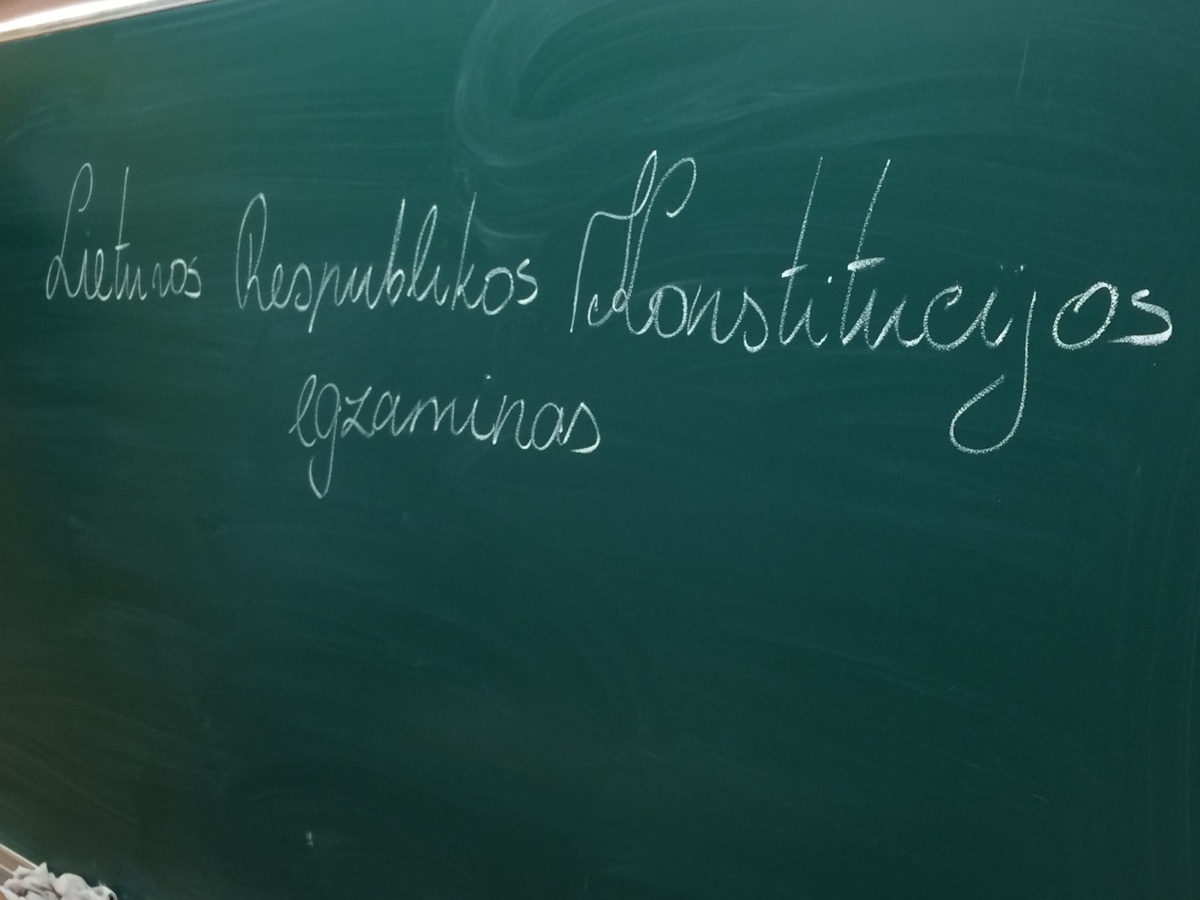 Lietuvos Respublikos Konstitucijos
egzaminas